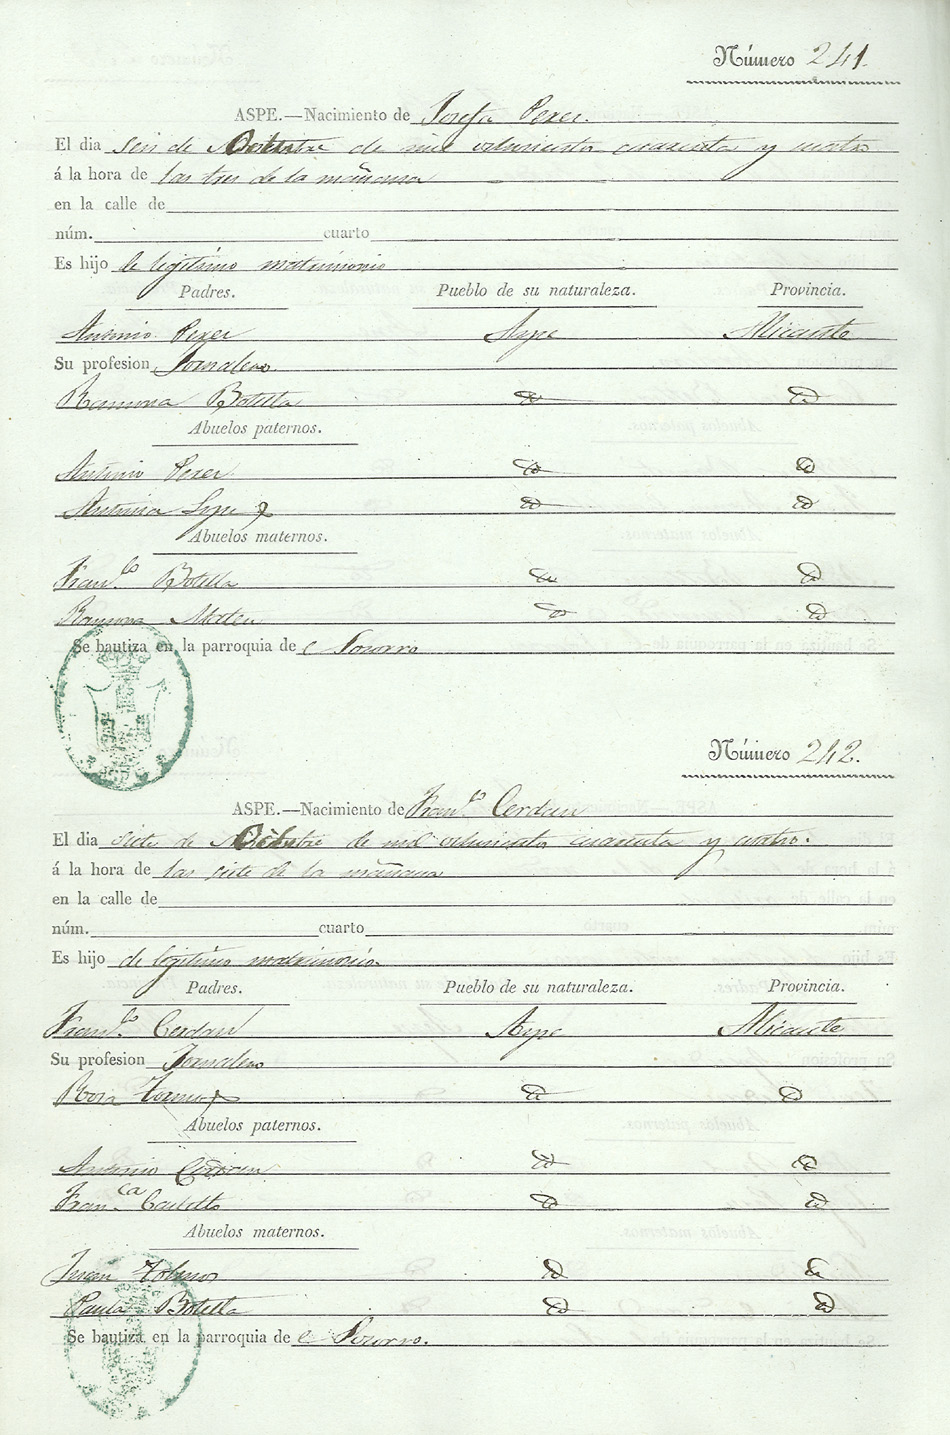 Número 241.
ASPE.—Nacimiento de Josefa Perer.
El dia seis de Octubre de mil ochocientos cuarenta y cuatro
á la hora de las tres de la mañana
en la calle de
núm. cuarto
Es hijo de legitimo matrimonio
Padres. Pueblo de su naturaleza. Provincia.
Antonio Perer Aspe Alicante
Su profesion Jornalero
Ramona Botella
Abuelos paternos.
Antonio Perer
Antonia
Abuelos maternos.
Fran.co Botella
Ramona Mateu
Se bautiza en la parroquia de Socorro
Número 242.
ASPE.—Nacimiento de Fran.co Cerdan
El dia siete de Octubre de mil ochocientos cuarenta y cuatro.
á la hora de las siete de la mañana
en la calle de
núm. cuarto
Es hijo de legitimo matrimonio.
Padres. Pueblo de su naturaleza. Provincia.
Fran.co Cerdan Aspe Alicante
Su profesion Jornalero
Rosa
Abuelos paternos.
Antonio Cerdan
Fran.ca
Abuelos maternos.
Juan
Paula Botella
Se bautiza en la parroquia de Socorro.